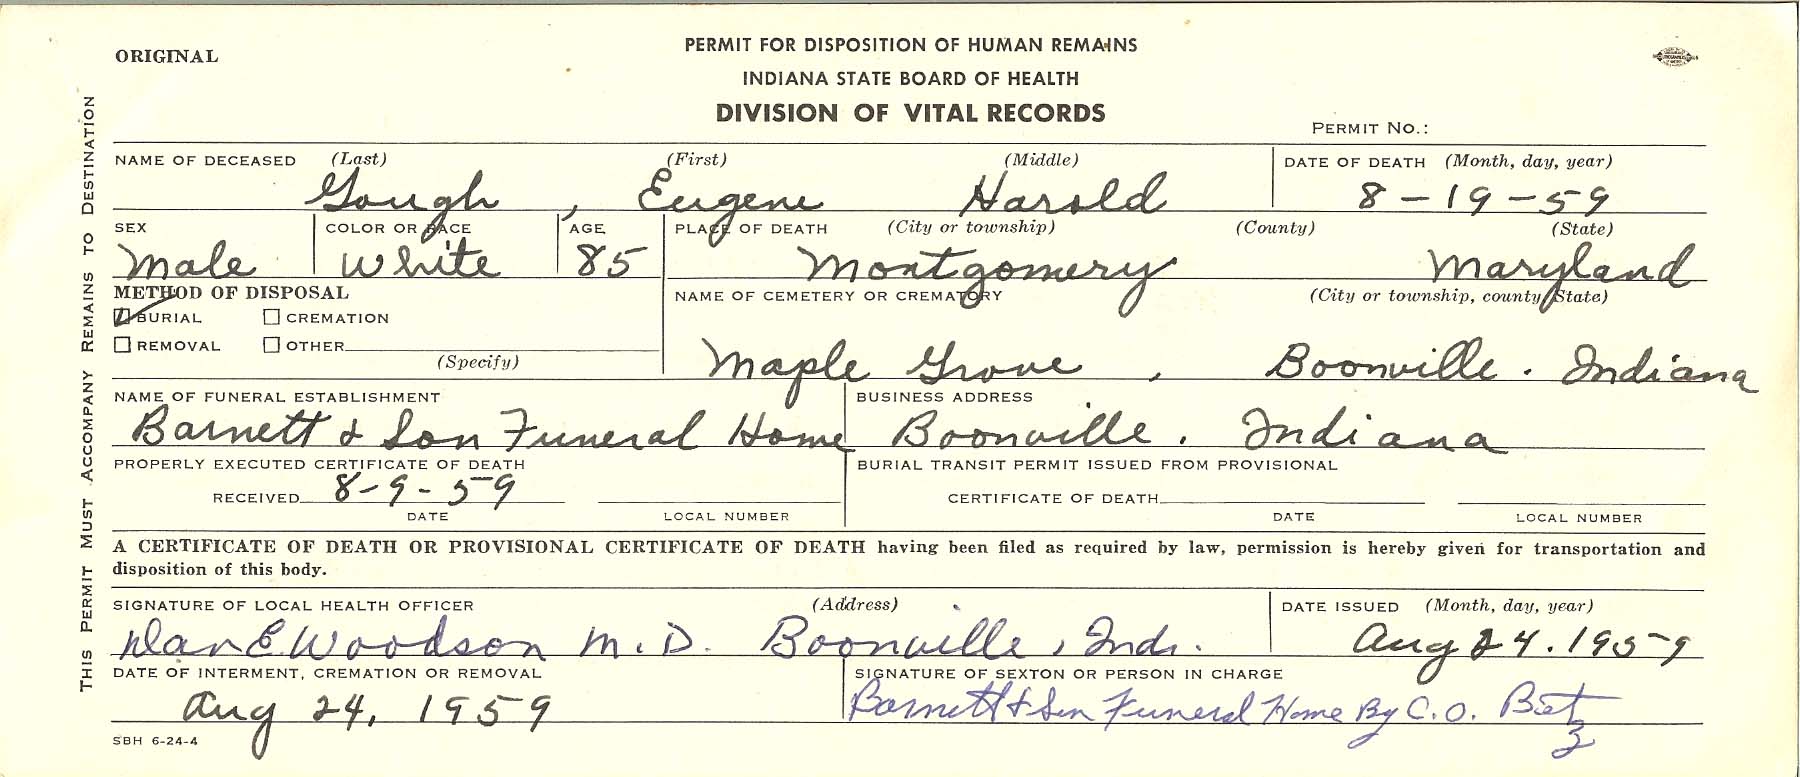 ORIGINAL
PERMIT FOR DISPOSITION OF HUMAN REMAINS
INDIANA STATE BOARD OF HEALTH
DIVISION OF VITAL RECORDS
PERMIT NO.:
THIS PERMIT MUST ACCOMPANY REMAINS TO DESTINATION
NAME OF DECEASED (Last) (First) (Middle) DATE OF DEATH (Month, day, year)
Gough, Eugene Harold 8-19-59
SEX COLOR OR RACE AGE PLACE OF DEATH (City or township) (County) (State)
Male White 85 Montgomery Maryland
METHOD OF DISPOSAL NAME OF CEMETERY OR CREMATORY (City or township, county, State)
BURIAL CREMATION
REMOVAL OTHER
(Specify)
Maple Grove, Boonville. Indiana
NAME OF FUNERAL ESTABLISHMENT BUSINESS ADDRESS
Barnett & Son Funeral Home Boonville. Indiana
PROPERLY EXECUTED CERTIFICATE OF DEATH BURIAL TRANSIT PERMIT ISSUED FROM PROVISIONAL
RECEIVED 8-9-59 CERTIFICATE OF DEATH
DATE LOCAL NUMBER DATE LOCAL NUMBER
A CERTIFICATE OF DEATH OR PROVISIONAL CERTIFICATE OF DEATH having been filed as required by law, permission is hereby given for transportation and
disposition of this body.
SIGNATURE OF LOCAL HEALTH OFFICER (Address) DATE ISSUED (Month, day, year)
Dan E Woodson M.D. Boonville, Ind. Aug 24. 1959
DATE OF INTERMENT, CREMATION OR REMOVAL SIGNATURE OF SEXTON OR PERSON IN CHARGE
Aug 24, 1959 Barnett & Son Funeral Home By C.O. Bietz
SBH 6-24-4